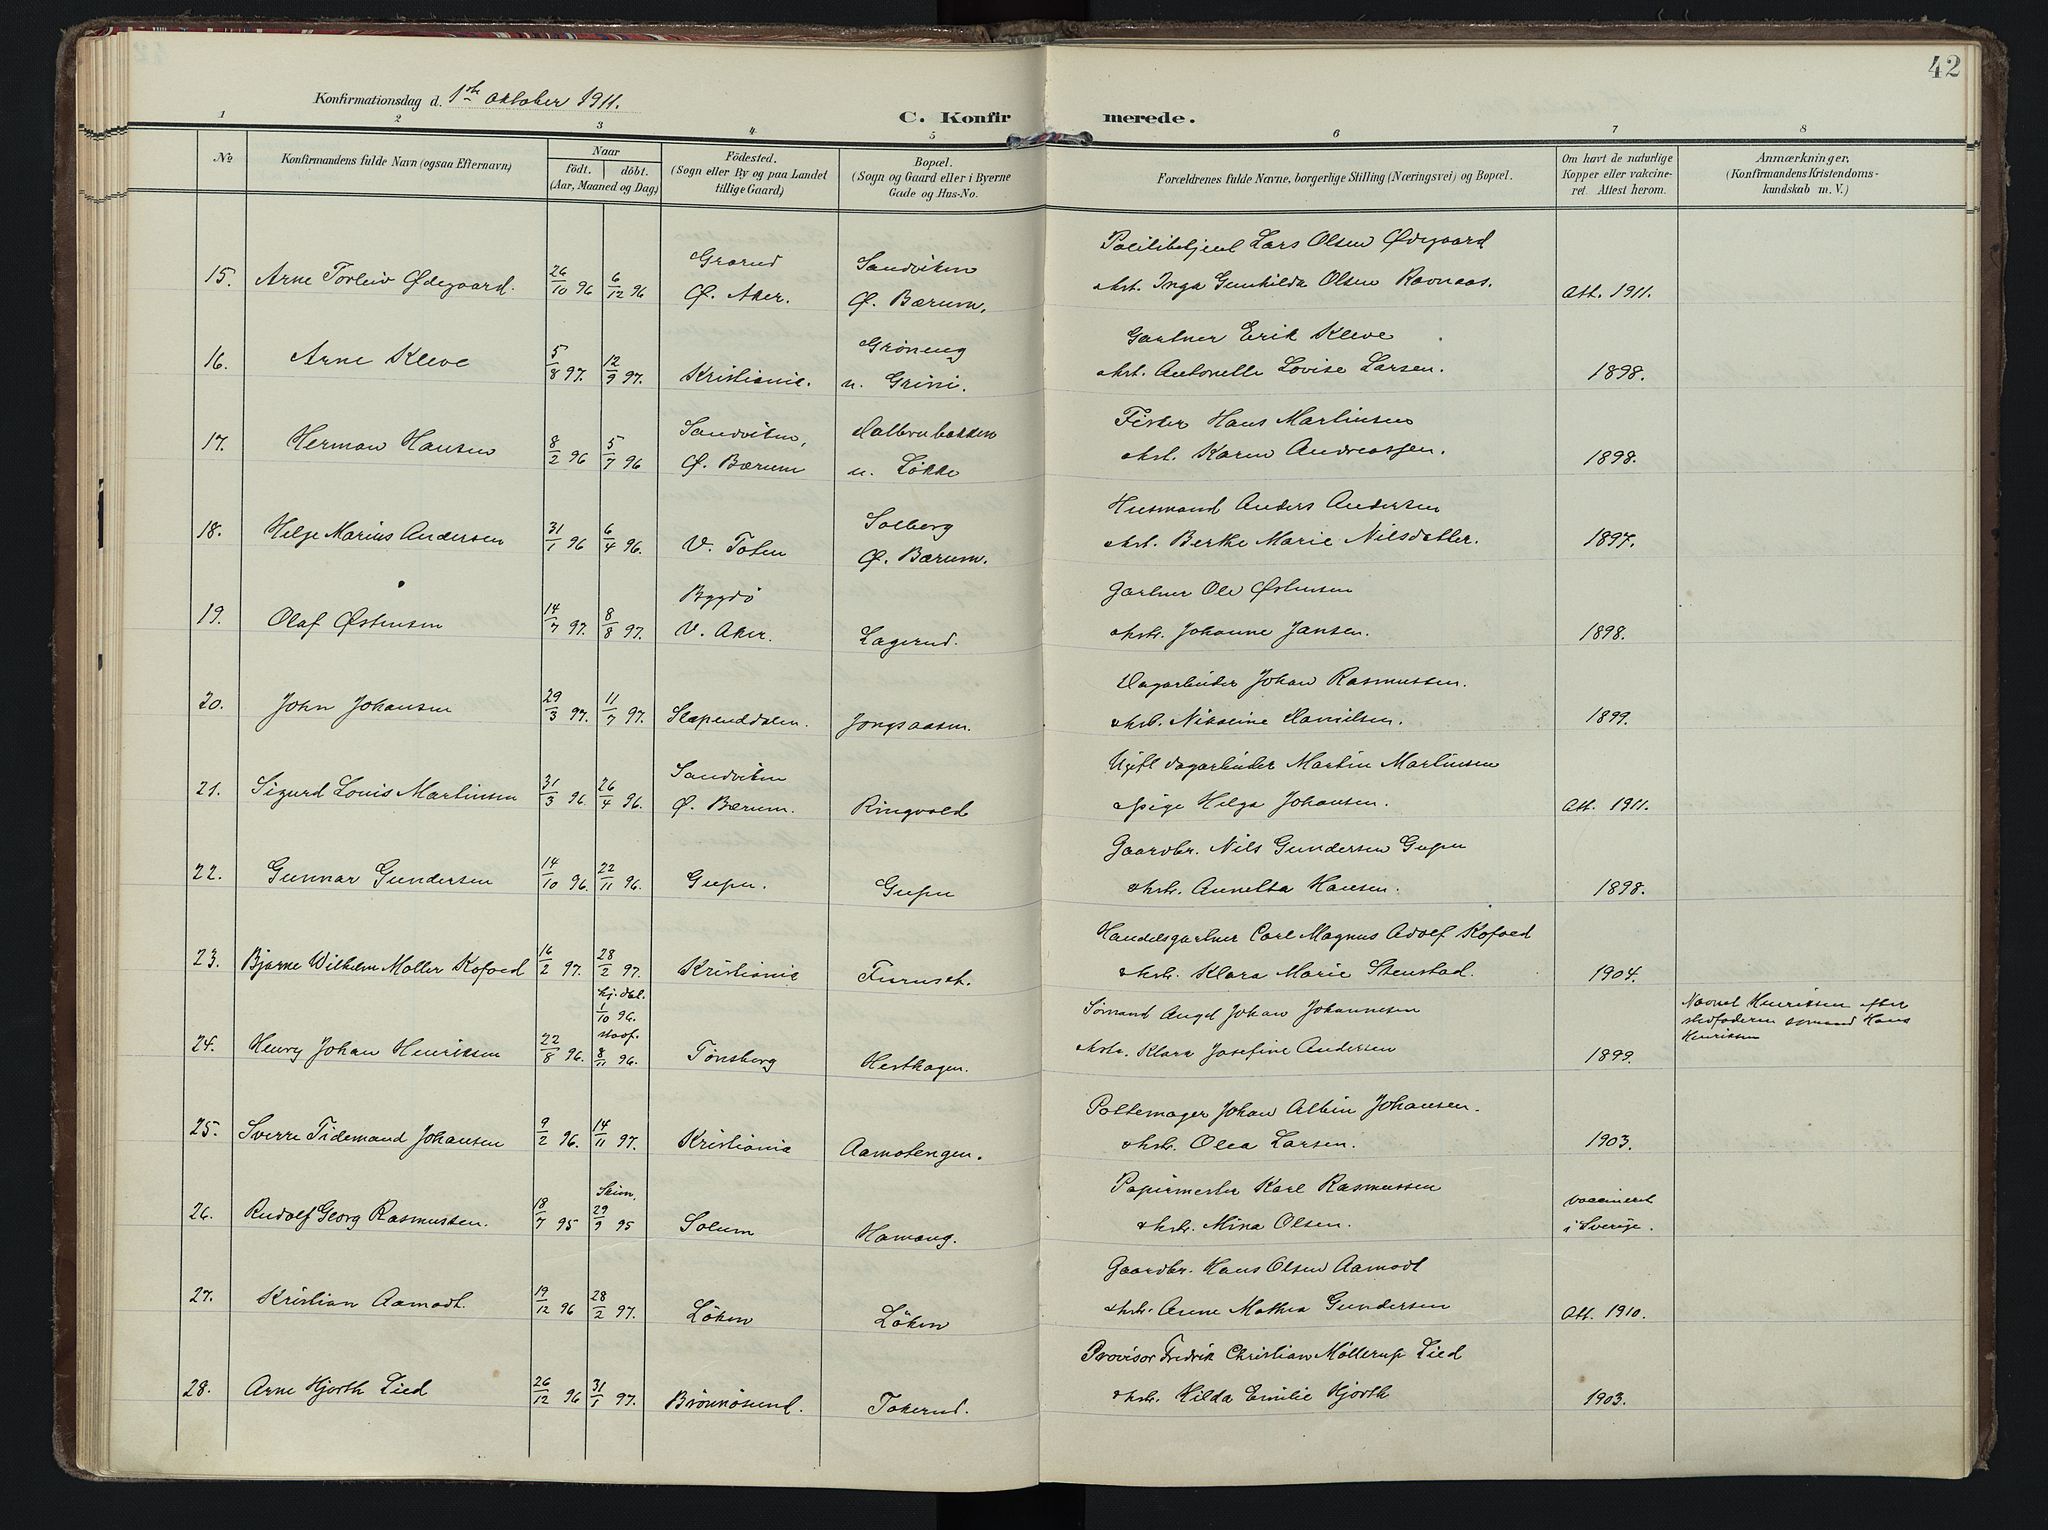 42
Konfirmationsdag d. 1ste oktober 1911.
C. Konfirmerede.
1 2 3 4 5 6 7 8
No
Konfirmandens fulde Navn (ogsaa Efternavn)
Naar
födt. döbt.
(Aar, Maaned og Dag)
Födested.
(Sogn eller By og paa Landet
tillige Gaard)
Bopæl.
(Sogn og Gaard eller i Byerne
Gade og Hus-No.
Forældrenes fulde Navne, borgerlige Stilling (Næringsvei) og Bopæl.
Om havt de naturlige
Kopper eller vakcine-
ret. Attest herom.
Anmærkninger,
(Konfirmandens Kristendoms-
kundskab m. V.)
15. Arne Torleiv Ødegaard. 26/10 96 6/12 96
Grorud
Ø. Aker.
Sandviken
Ø. Bærum.
Politibetjent Lars Olsen Ødegaard
Inga Gunhilda Olsen Ravnaas.
Att. 1911.
16. Arne Kleve 5/8 97. 12/9 97.
Kristiania.
Grøneng
u. Grini.
Gartner Erik Kleve
Antonette Lovise Larsen.
1898.
17. Herman Hansen 8/2 96 5/7 96
Sandviken,
Ø. Bærum
Dalbrubakken
u. Løkke
Fisker Hans Martinsen
Karen Andreassen.
1898.
18. Helge Marius Andersen 31/1 96 6/4 96.
V. Toten
Solberg
Ø. Bærum.
Husmand Anders Andersen
Berthe Marie Nilsdatter.
1897.
19. Olaf Østensen 14/7 97. 8/8 97.
Bygdø
V. Aker.
Lagerud.
Gartner Ole Østensen
Johanne Jansen.
1898.
20. John Johansen 29/3 97. 11/7 97.
Slependdalen.
Jongsaasen.
Dagarbeider Johan Rasmussen.
Nikoline Danielsen.
1899.
21. Sigurd Louis Martinsen 31/3 96. 26/4 96.
Sandviken
Ø. Bærum.
Ringvold
Ugift dagarbeider Martin Martinsen
pige Helga Johansen.
Att. 1911.
22. Gunnar Gundersen 14/10 96. 22/11 96.
Gupu.
Gupu
Gaardbr. Nils Gundersen Gupu
Annetta Hansen.
1898.
23. Bjarne Wilhelm Møller Kofoed 16/2 97. 28/2 97.
Kristiania
Furuset.
Handelsgartner Carl Magnus Adolf Kofoed
Klara Marie Stenstad.
1904.
24. Henry Johan Henriksen 22/8 96.
hj. døbt.
1/10 96.
stadf.
8/11 96.
Tønsberg
Hesthagen.
Sømand Johan Johannesen
Klara Josefine Andersen
1899.
Navnet Henriksen efter
stedfaderen sømand Hans
Henriksen
25. Sverre Tidemand Johansen 9/2 96. 14/11 97.
Kristiania
Aamotengen.
Pottemager Johan Albin Johansen.
Olea Larsen.
1903.
26. Rudolf Georg Rasmussen. 18/7 95
29/9 95
Solum
Hamang.
Papirmester Karl Rasmussen
Mina Olsen.
vaccineret
i Sverige.
27. Kristian Aamodt. 19/12 96 28/2 97.
Løken
Løken
Gaardbr. Hans Olsen Aamodt
Anne Mathea Gundersen
Att. 1910.
28. Arne Hjorth Lied 26/12 96 31/1 97.
Brønnøsund.
Tokerud.
Provisor Fredrik Christian Møllerup Lied
Hilda Emilie Hjorth
1903.